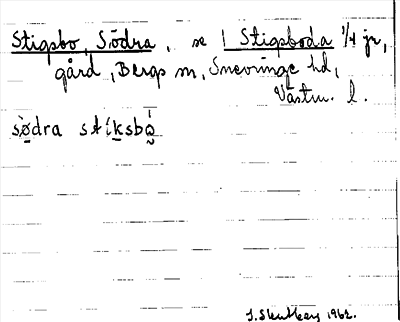 Stigsbo, Södra, se 1 Stigsboda 1/4 jr,
gård, Bergs sn, Snevringe hd,
Västm. l.
södra stiksbo̰
1962.